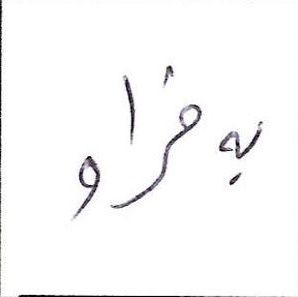 به فراو